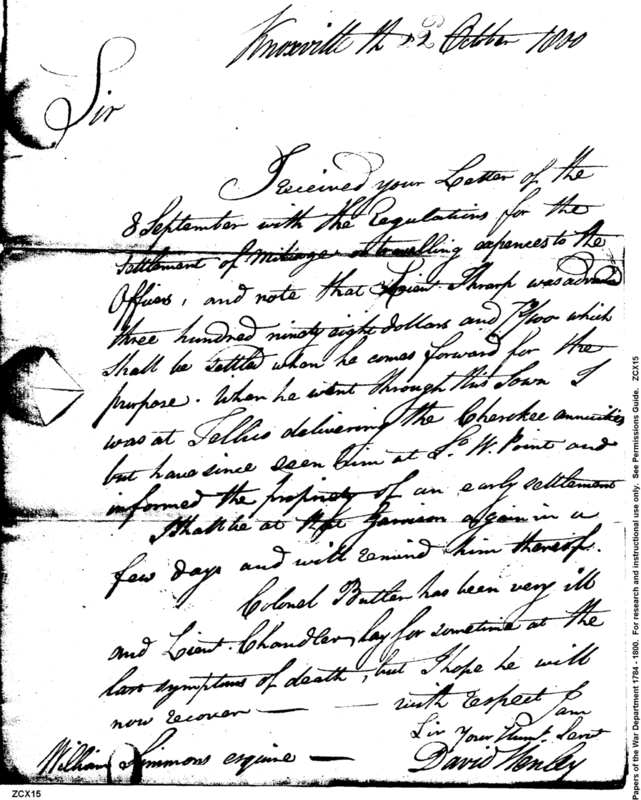 Knoxville th 2d October 1800
Sir
I received your Letter of the
8 September with the Regulations for the
settlement of Mileage or travelling expences to the
Officers, and note that Lieut. Tharp was advanced
three hundred ninety eight dollars and 7/100 which
shall be settled when he comes forward for the
purpose. When he went through this Town I
was at Tellico delivering the Cherokee annuities
but have since seen him at So. W. Point and
informed the propriety of an early settlement
I shall be at that Garrison again in a
few days and will remind him thereof.
Colonel Butler has been very ill
and Lieut. Chandler lay for sometime at the
last symptoms of death, but I hope he will
now recover — — with respect I am
Sir Your Humt. Servt
William Simmons esquire — David Henley
ZCX15
Papers of the War Department 1784 - 1800. For research and instructional use only. See Permissions Guide. ZCX15